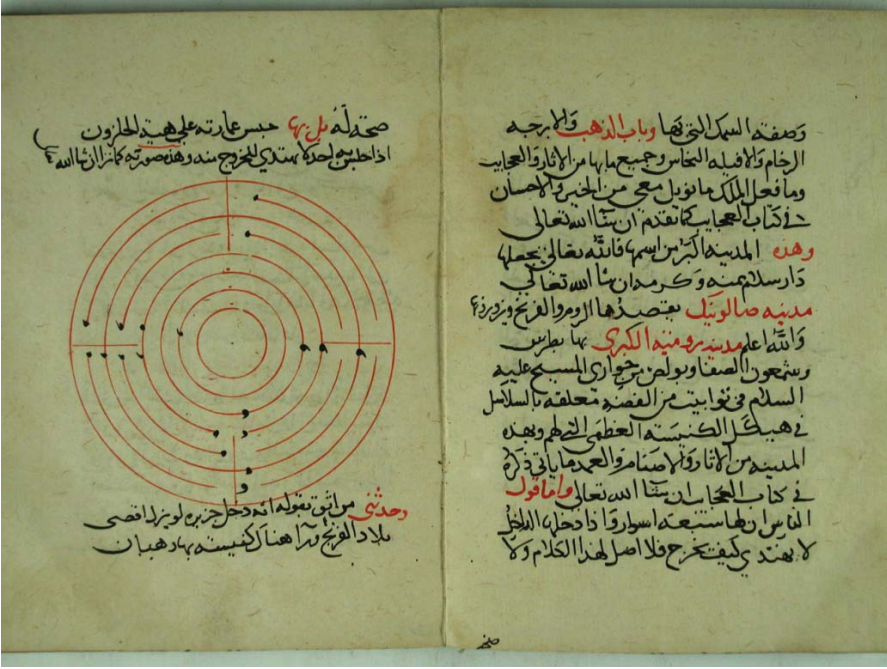 وصفة السمك التي بها وباب الذهب والابرجه
الرخام والافيله النحاس وجميع ما بها من الاثار والعجايب
وما فعل الملك مانويل معي من الخير والاحسان
في كتاب العجايب كما تقدم ان شا الله تعالى
وهذه المدينه اكبر من اسمها فالله تعالى يجعلها
دار سلام بمنه وكرمه ان شا الله تعالى
مدينه صالونيك يقصدها الروم والفرنج
والله اعلم مدينه روميه الكبرى بها بطرس
وشمعون الصفا وبولص من حواري المسيح عليه
السلام في توابيت من الفضه معلقه بالسلاسل
في هيكل الكنيسه العظمى التي لهم وبهذه
المدينه من الاثار والاصنام والعمد ما ياتي ذكره
في كتاب العجايب ان شا الله تعالى واما قول
الناس ان لها سبعه اسوار واذا دخلها الداخل
لا يهتدي كيف يخرج فلا اصل لهذا الكلام ولا
صحه
صحه له بل بها حبس عمارته على هيية الحلزون
اذا حبس به احد لا يهتدي للخروج منه وهذه صورته كما ترا ان شا الله
وحدثني من اثق بقوله انه دخل جزيره من اقصى
بلاد الفرنج ورا هناك كنيسه بها رهبان